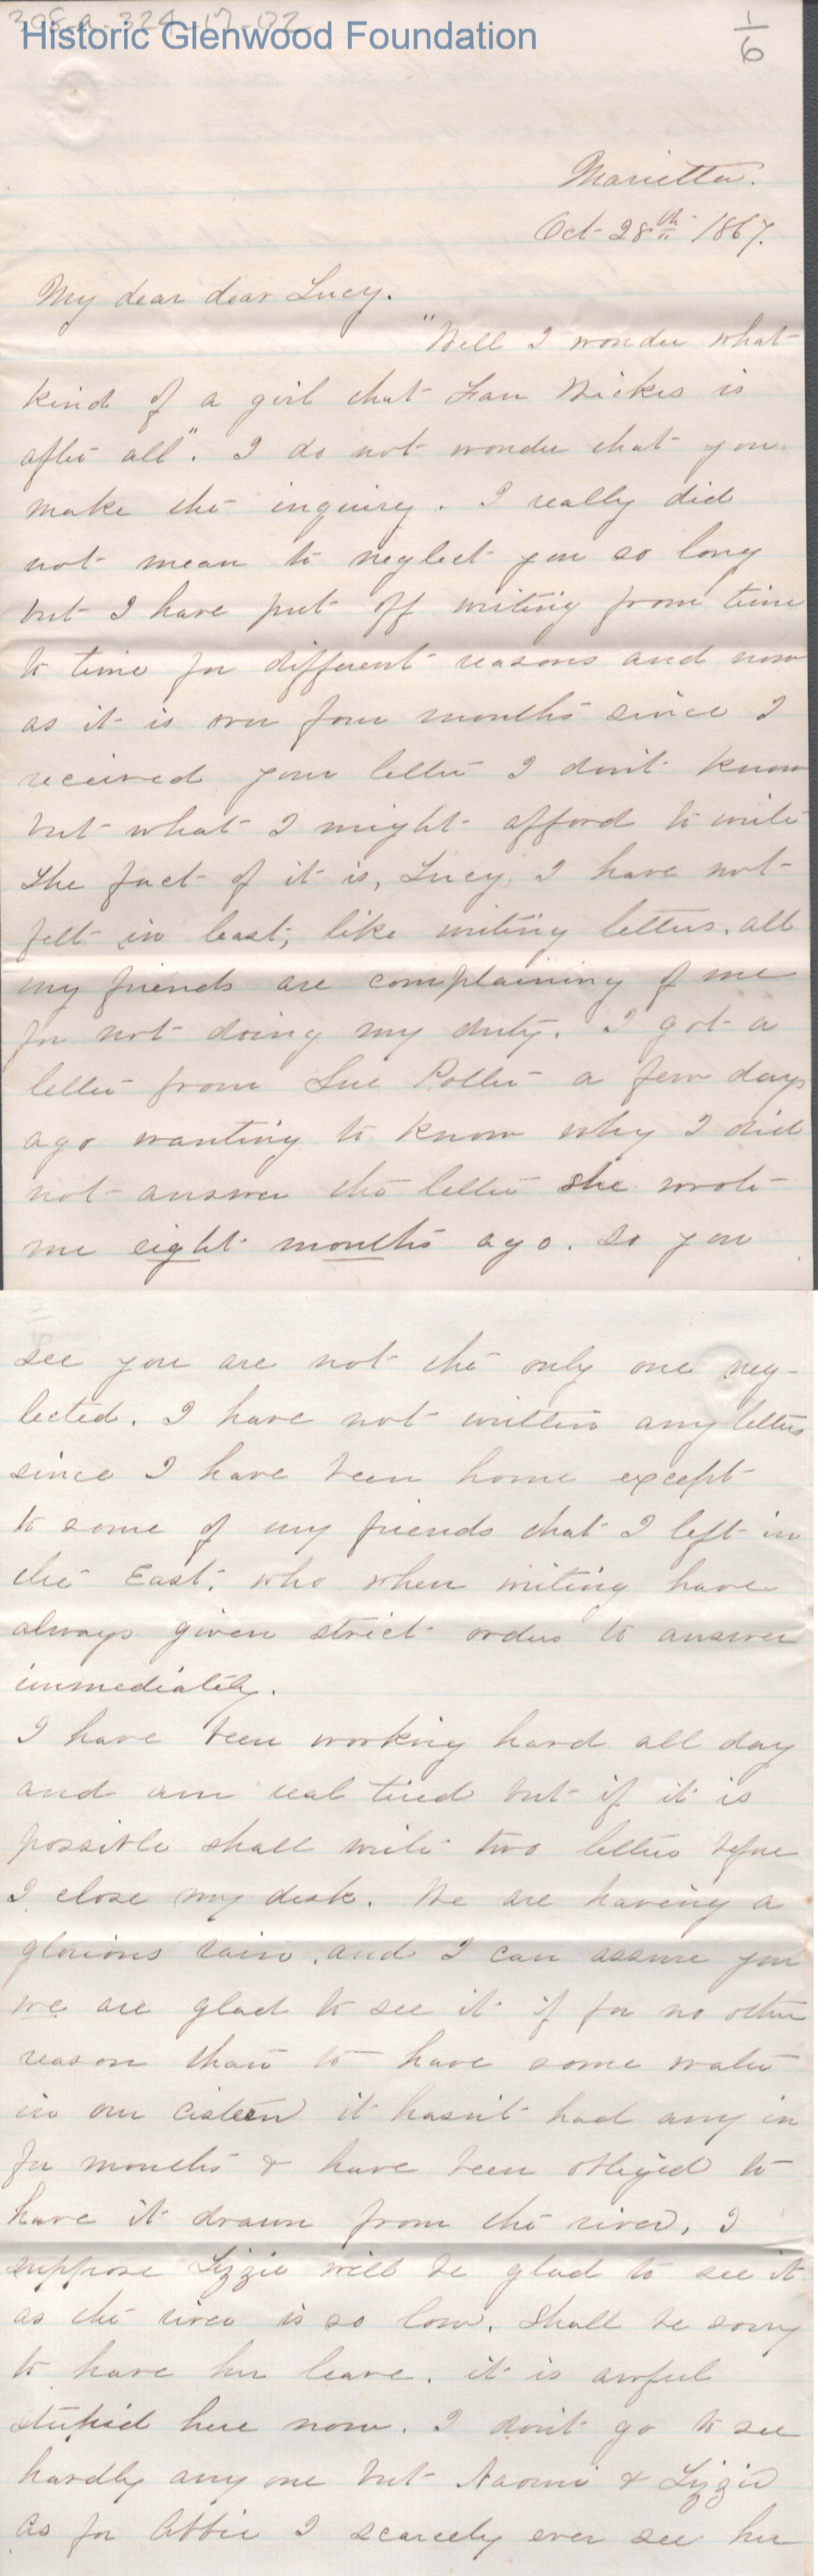 308-a-324-17-02
Historic Glenwood Foundation
1/6
Marietta.
Oct 28th 1867.
My dear dear Lucy.
"Well I wonder what
kind of a girl that Fan Wickes is
after all". I do not wonder that you
make the inquiry. I really did
not mean to neglect you so long
but I have put off writing from time
to time for different reasons and now
as it is over four months since I
received your letter I don't know
but what I might afford to write
The fact of it is, Lucy, I have not
felt in least, like writing letters. all
my friends are complaining of me
for not doing my duty. I got a
letter from Sue a few days
ago wanting to know why I did
not answer the letter she wrote
me eight months ago. So you
see you are not the only one neg-
lected. I have not written any letters
since I have been home except
to some of my friends that I left in
the East. who when writing have
always given strict orders to answer
immediately.
I have been working hard all day
and am real tired but if it is
possible shall write two letters before
I close my desk. We are having a
glorious rain. and I can assure you
we are glad to see it if for no other
reason than to have some water
in our cistern it hasn't had any in
for months & have been obliged to
have it drawn from the river. I
suppose Lizzie will be glad to see it
as the river is so low. Shall be sorry
to have her leave. it is awful
stupid here now. I don't go to see
hardly any one but Naomi & Lizzie
As for Abbie I scarcely ever see her